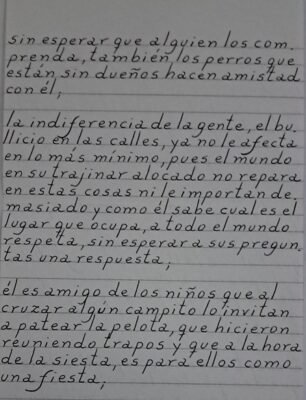 sin esperar que alguien los com-
prenda, también los perros que
están sin dueños hacen amistad
con él;
la indiferencia de la gente, el bu-
llicio en las calles, ya no le afecta
en lo más mínimo, pues el mundo
en su trajinar alocado no repara
en estas cosas ni le importan de,
masiado y como él sabe cual es el
lugar que ocupa, a todo el mundo
respeta, sin esperar a sus pregun-
tas una respuesta;
él es amigo de los niños que al
cruzar algún campito lo invitan
a patear la pelota, que hicieron
reuniendo trapos y que a la hora
de la siesta, es para ellos como
una fiesta;